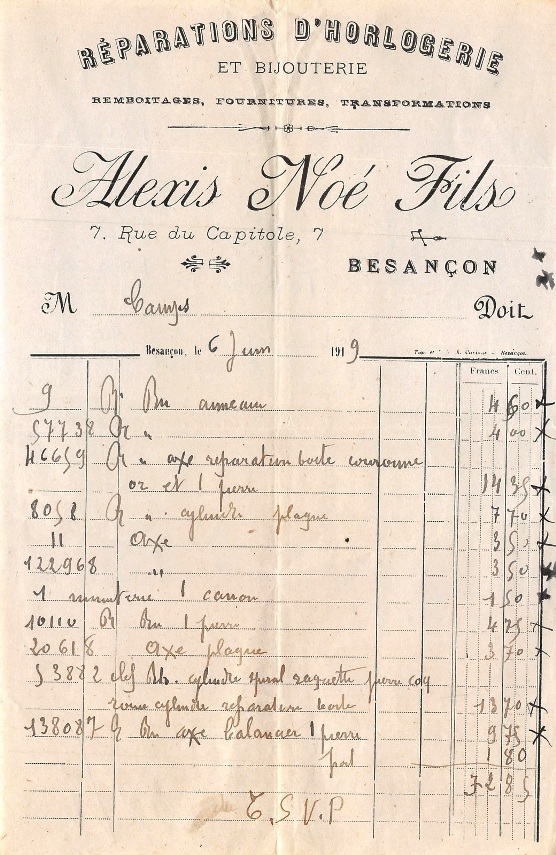 RÉPARATIONS D'HORLOGERIE
ET BIJOUTERIE
REMBOITAGES, FOURNITURES, TRANSFORMATIONS
Alexis Noé Fils
7. Rue du Capitole, 7
BESANÇON
M Doit
Besançon, le 6 Juin 1919
Francs Cent.
9 R. Bn anneau 4 60
57738 R " 4 00
46659 R " axe reparation boite couronne
or et 1 pierre 14 35
8058 R " cylindre plaque 7 70
11 axe 3 50
122968 " 3 50
1 minuterie 1 canon 1 50
10110 R Bn 1 pierre 4 25
20618 axe plaque 3 70
53882 clef cylindre spiral raquette pierre coq
roue cylindre reparation boite 13 70
138087 R Bn axe balancier 1 pierre 9 75
port 1 80
72 85
T. S. V. P